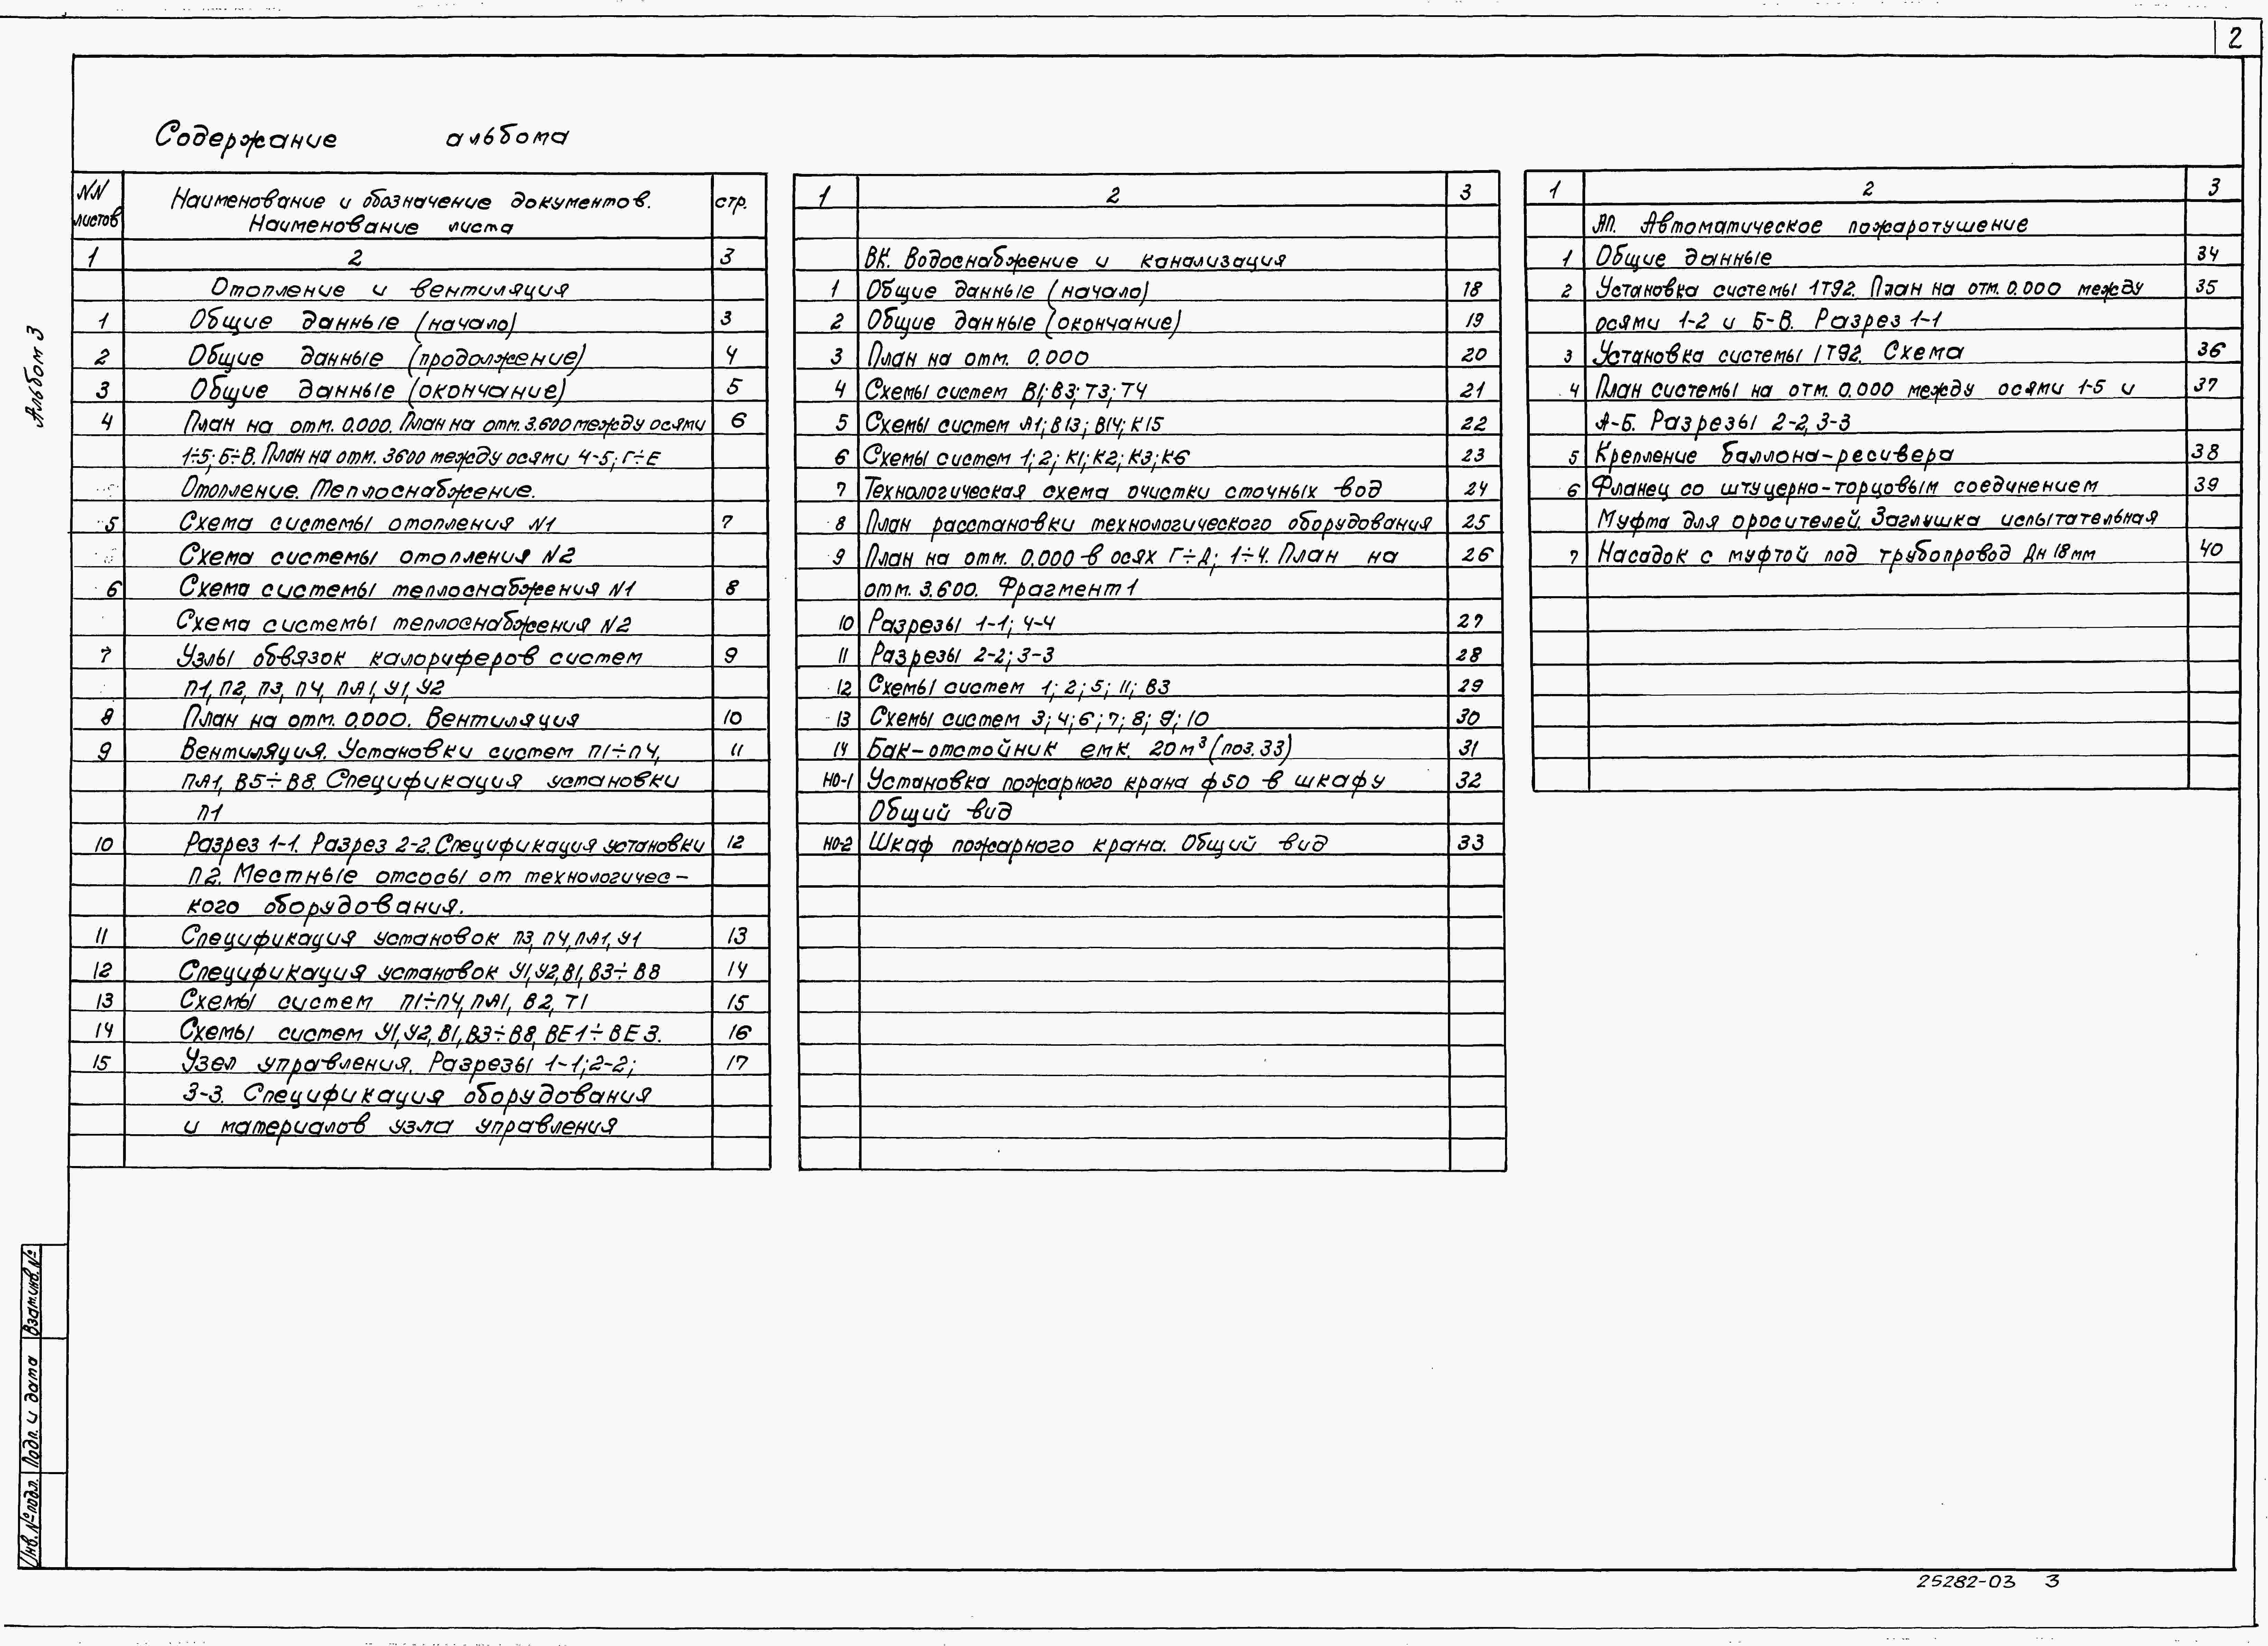 2
Содержание альбома
Альбом 3
NN листов
Наименование и обозначение документов.
Наименование листа
стр.
1 2 3
Отопление и вентиляция
1 Общие данные (начало) 3
2 Общие данные (продолжение) 4
3 Общие данные (окончание) 5
4 План на отм. 0.000. План на отм. 3.600 между осями 6
1÷5; Б÷В. План на отм. 3600 между осями 4-5; Г÷Е
Отопление. Теплоснабжение.
5 Схема системы отопления N1 7
Схема системы отопления N2
6 Схема системы теплоснабжения N1 8
Схема системы теплоснабжения N2
7 Узлы обвязок калориферов систем 9
П1, П2, П3, П4, ПА1, У1, У2
8 План на отм. 0.000. Вентиляция 10
9 Вентиляция. Установки систем П1÷П4, 11
ПА1, В5÷В8. Спецификация установки
П1
10 Разрез 1-1. Разрез 2-2. Спецификация установки 12
П2. Местные отсосы от технологичес-
кого оборудования.
11 Спецификация установок П3, П4, ПА1, У1 13
12 Спецификация установок У1, У2, В1, В3÷В8 14
13 Схемы систем П1÷П4, ПА1, В2, Т1 15
14 Схемы систем У1, У2, В1, В3÷В8, ВЕ1÷ВЕ3. 16
15 Узел управления. Разрезы 1-1; 2-2; 17
3-3. Спецификация оборудования
и материалов узла управления
1 2 3
ВК. Водоснабжение и канализация
1 Общие данные (начало) 18
2 Общие данные (окончание) 19
3 План на отм. 0.000 20
4 Схемы систем В1; В3; Т3; Т4 21
5 Схемы систем А1; В13; В14; К15 22
6 Схемы систем 1; 2; К1; К2; К3; К6 23
7 Технологическая схема очистки сточных вод 24
8 План расстановки технологического оборудования 25
9 План на отм. 0.000 в осях Г÷Д; 1÷4. План на 26
отм. 3.600. Фрагмент 1
10 Разрезы 1-1; 4-4 27
11 Разрезы 2-2; 3-3 28
12 Схемы систем 1; 2; 5; 11; В3 29
13 Схемы систем 3; 4; 6; 7; 8; 9; 10 30
14 Бак-отстойник емк. 20м³ (поз. 33) 31
НО-1 Установка пожарного крана ф50 в шкафу 32
Общий вид
НО-2 Шкаф пожарного крана. Общий вид 33
1 2 3
АП. Автоматическое пожаротушение
1 Общие данные 34
2 Установка системы 1Т92. План на отм. 0.000 между 35
осями 1-2 и Б-В. Разрез 1-1
3 Установка системы 1Т92. Схема 36
4 План системы на отм. 0.000 между осями 1-5 и 37
А-Б. Разрезы 2-2, 3-3
5 Крепление баллона-ресивера 38
6 Фланец со штуцерно-торцовым соединением 39
Муфта для оросителей. Заглушка испытательная
7 Насадок с муфтой под трубопровод Дн 18мм 40
Взам.инв.№
Подп. и дата
Инв.№ подл.
25282-03 3